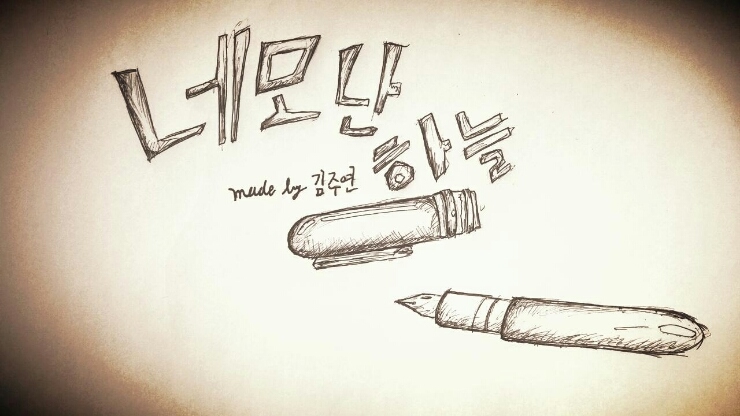 네모난
하늘
made by 김주연